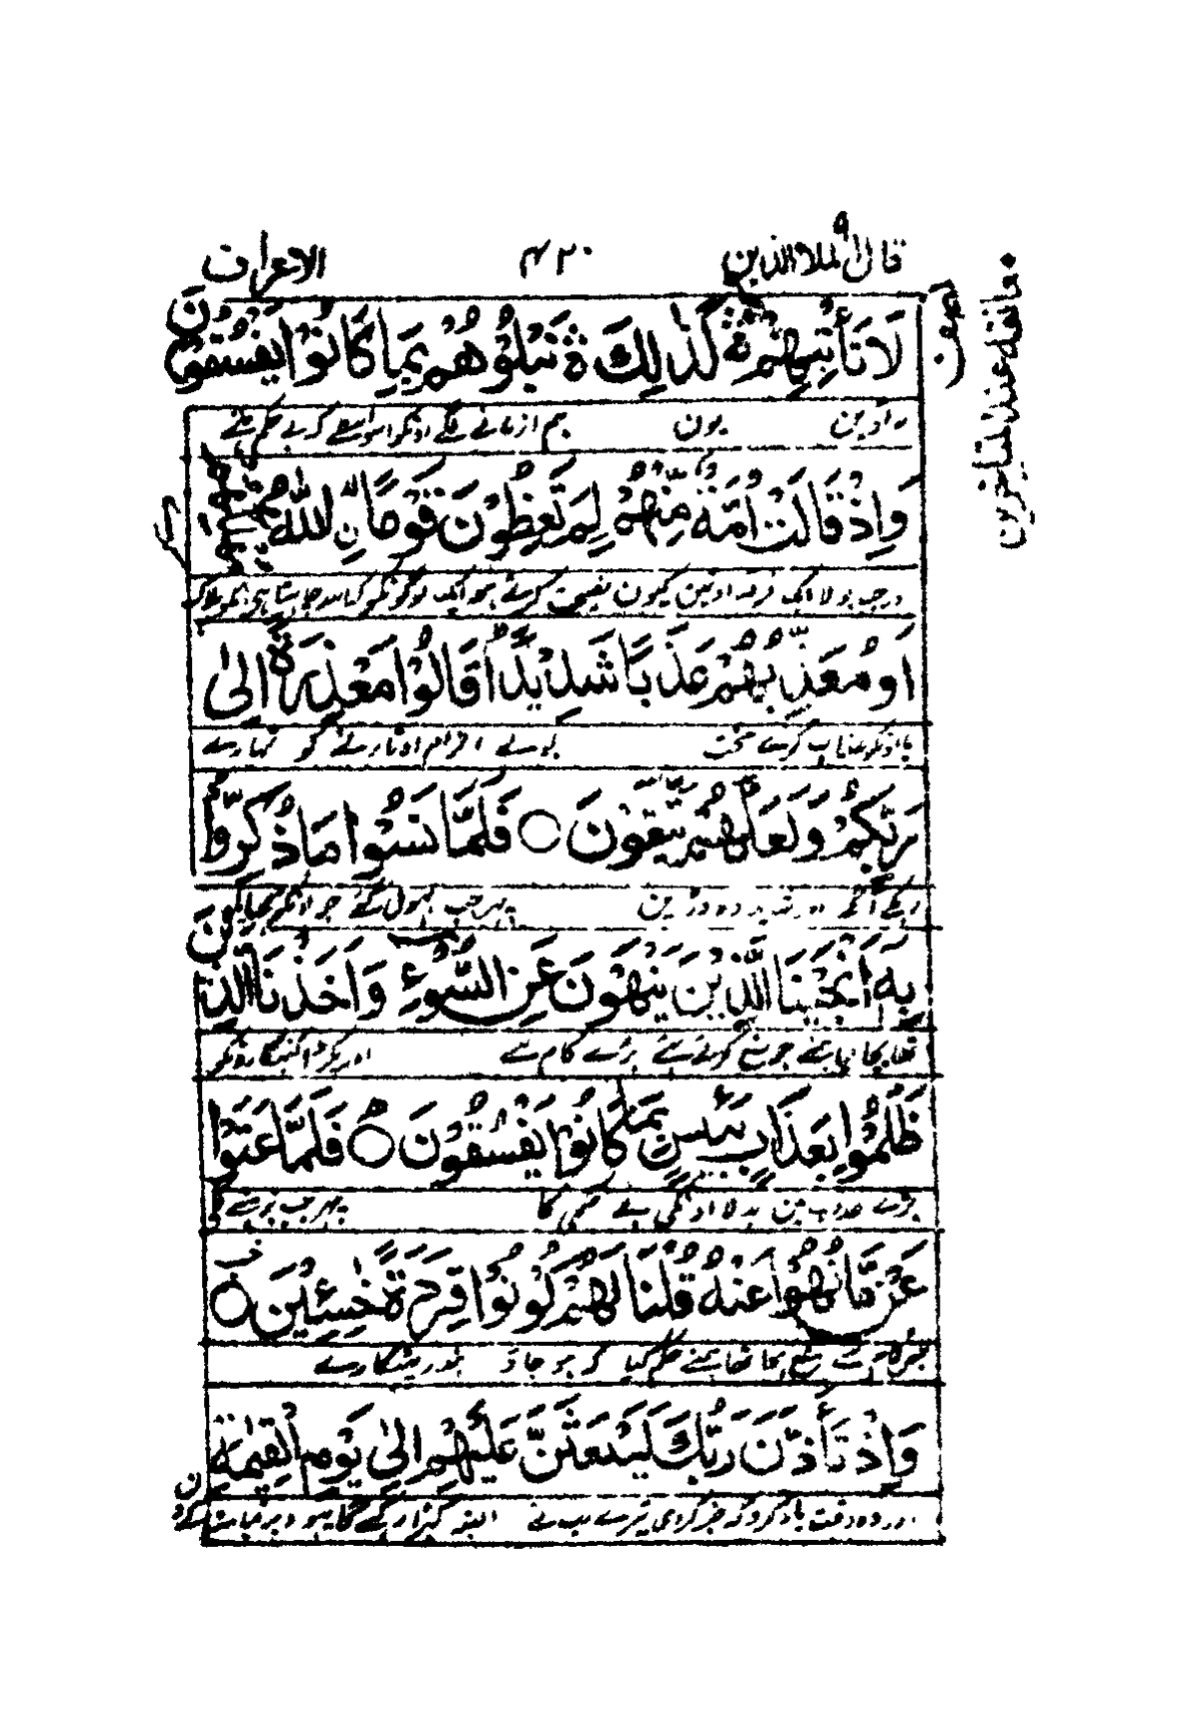 قال الملا الذين ٩ ٤٢٠ الاعراف
معانقه عند المتاخرين
لَا تَأْتِيهِمْ ۛ كَذٰلِكَ ۛ نَبْلُوْهُمْ بِمَا كَانُوْا يَفْسُقُوْنَ
نہ آوین یون ہم ازمانے لگے اونکو اسواسطے کہ بے حکم تھے
وَاِذْ قَالَتْ اُمَّةٌ مِّنْهُمْ لِمَ تَعِظُوْنَ قَوْمًا ۨ اللّٰهُ مُهْلِكُهُمْ
اور جب بولا ایک فرقہ اونمین کیون نصیحت کرتے ہو ایک لوگونکو کہ اللہ چاہتا ہی
اَوْ مُعَذِّبُهُمْ عَذَابًا شَدِيْدًا قَالُوْا مَعْذِرَةً اِلٰى
یا اونکو عذاب کرے سخت بولے الزام اوتارنے کو تمہارے
رَبِّكُمْ وَلَعَلَّهُمْ يَتَّقُوْنَ ○ فَلَمَّا نَسُوْا مَا ذُكِّرُوْا
ربکے آگے اور شاید وہ ڈرین پہر جب بہول گئے جو اونکو
بِهٖٓ اَنْجَيْنَا الَّذِيْنَ يَنْهَوْنَ عَنِ السُّوْٓءِ وَاَخَذْنَا الَّذِيْنَ
تھا بچا لیا ہمنے جو منع کرتے تھے برے کام سے اور پکڑا گنہگارونکو
ظَلَمُوْا بِعَذَابٍۢ بَئِيْسٍۢ بِمَا كَانُوْا يَفْسُقُوْنَ ○ فَلَمَّا عَتَوْا
برے عذاب مین بدلا اونکی بے حکمی کا پہر جب
عَنْ مَّا نُهُوْا عَنْهُ قُلْنَا لَهُمْ كُوْنُوْا قِرَدَةً خٰسِئِيْنَ ○
جس کام سے منع ہوا تھا ہمنے حکم کیا کہ ہو جاؤ بندر پھٹکارے
وَاِذْ تَاَذَّنَ رَبُّكَ لَيَبْعَثَنَّ عَلَيْهِمْ اِلٰى يَوْمِ الْقِيٰمَةِ
اور وہ وقت یاد کرو کہ خبر کردی تیرے رب نے البتہ کھڑا رکھے گا یہود پر قیامت کے دن